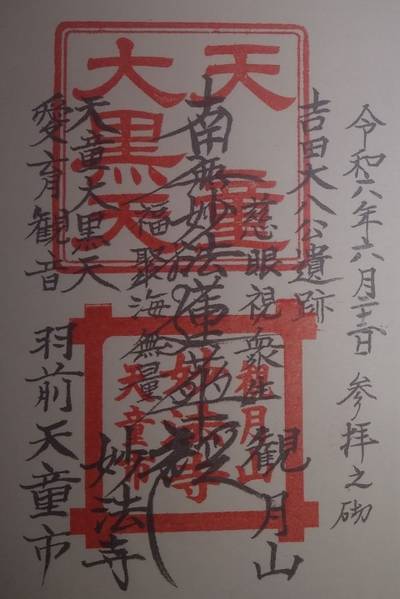 令和六年六月二十二日 参拝之砌
吉田大八公遺跡
慈眼視衆生 観月山
南無妙法蓮華経
福聚海無量 妙法寺
天童大黒天
愛育観音 羽前天童市
天童
大黒天
観月山
妙法寺
天童市